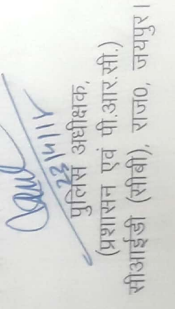 23/4/18
पुलिस अधीक्षक,
(प्रशासन एवं पी.आर.सी.)
सीआईडी (सीबी), राज0, जयपुर।